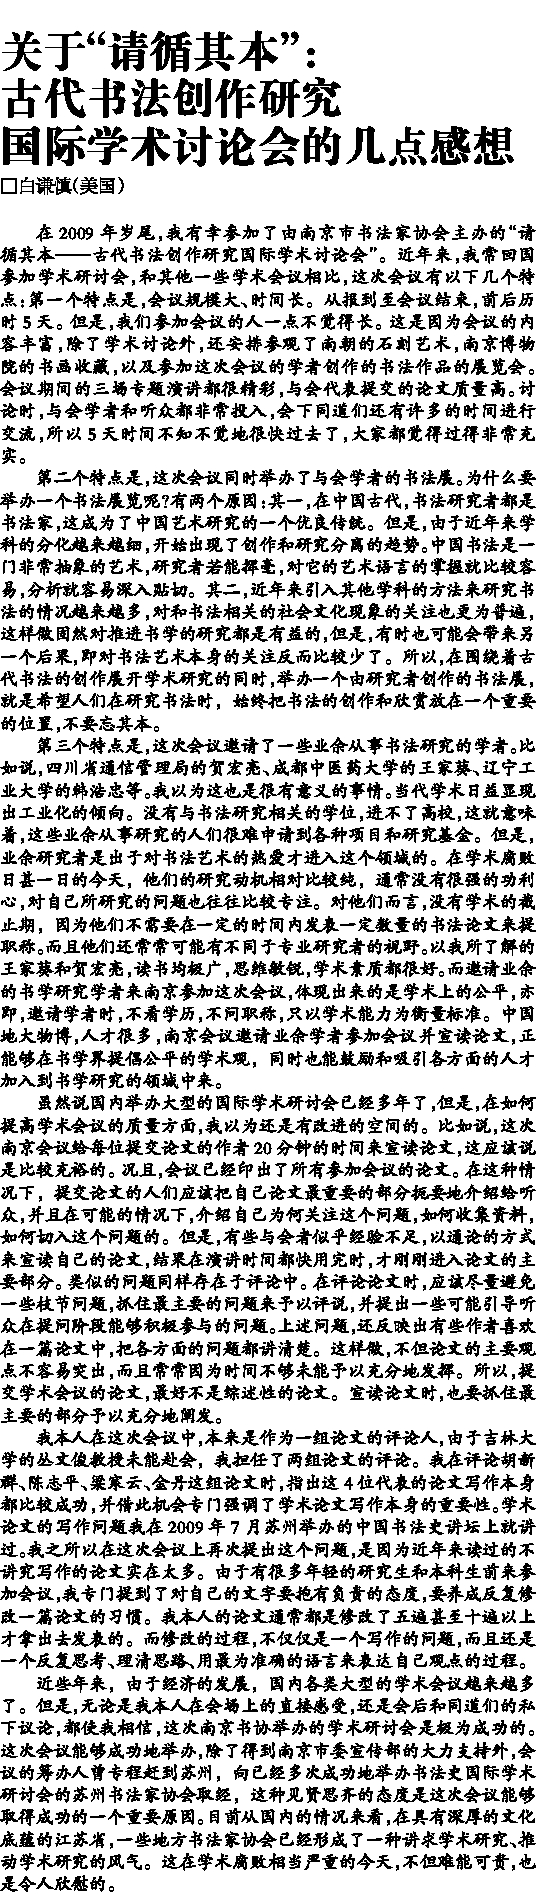 关于“请循其本”：
古代书法创作研究
国际学术讨论会的几点感想
□白谦慎(美国)
在 2009 年岁尾,我有幸参加了由南京市书法家协会主办的“请
循其本——古代书法创作研究国际学术讨论会”。近年来,我常回国
参加学术研讨会,和其他一些学术会议相比,这次会议有以下几个特
点:第一个特点是,会议规模大、时间长。从报到至会议结束,前后历
时 5 天。但是,我们参加会议的人一点不觉得长。这是因为会议的内
容丰富,除了学术讨论外,还安排参观了南朝的石刻艺术,南京博物
院的书画收藏,以及参加这次会议的学者创作的书法作品的展览会。
会议期间的三场专题演讲都很精彩,与会代表提交的论文质量高。讨
论时,与会学者和听众都非常投入,会下同道们还有许多的时间进行
交流,所以 5 天时间不知不觉地很快过去了,大家都觉得过得非常充
实。
第二个特点是,这次会议同时举办了与会学者的书法展。为什么要
举办一个书法展览呢?有两个原因:其一,在中国古代,书法研究者都是
书法家,这成为了中国艺术研究的一个优良传统。但是,由于近年来学
科的分化越来越细,开始出现了创作和研究分离的趋势。中国书法是一
门非常抽象的艺术,研究者若能挥毫,对它的艺术语言的掌握就比较容
易,分析就容易深入贴切。其二,近年来引入其他学科的方法来研究书
法的情况越来越多,对和书法相关的社会文化现象的关注也更为普遍,
这样做固然对推进书学的研究都是有益的,但是,有时也可能会带来另
一个后果,即对书法艺术本身的关注反而比较少了。所以,在围绕着古
代书法的创作展开学术研究的同时,举办一个由研究者创作的书法展,
就是希望人们在研究书法时，始终把书法的创作和欣赏放在一个重要
的位置,不要忘其本。
第三个特点是,这次会议邀请了一些业余从事书法研究的学者。比
如说,四川省通信管理局的贺宏亮、成都中医药大学的王家葵、辽宁工
业大学的韩浩忠等。我以为这也是很有意义的事情。当代学术日益显现
出工业化的倾向。没有与书法研究相关的学位,进不了高校,这就意味
着,这些业余从事研究的人们很难申请到各种项目和研究基金。但是,
业余研究者是出于对书法艺术的热爱才进入这个领域的。在学术腐败
日甚一日的今天，他们的研究动机相对比较纯，通常没有很强的功利
心,对自己所研究的问题也往往比较专注。对他们而言,没有学术的截
止期，因为他们不需要在一定的时间内发表一定数量的书法论文来提
职称。而且他们还常常可能有不同于专业研究者的视野。以我所了解的
王家葵和贺宏亮,读书均极广,思维敏锐,学术素质都很好。而邀请业余
的书学研究学者来南京参加这次会议,体现出来的是学术上的公平,亦
即,邀请学者时,不看学历,不问职称,只以学术能力为衡量标准。中国
地大物博,人才很多,南京会议邀请业余学者参加会议并宣读论文,正
能够在书学界提倡公平的学术观，同时也能鼓励和吸引各方面的人才
加入到书学研究的领域中来。
虽然说国内举办大型的国际学术研讨会已经多年了,但是,在如何
提高学术会议的质量方面,我以为还是有改进的空间的。比如说,这次
南京会议给每位提交论文的作者 20 分钟的时间来宣读论文,这应该说
是比较充裕的。况且,会议已经印出了所有参加会议的论文。在这种情
况下，提交论文的人们应该把自己论文最重要的部分扼要地介绍给听
众,并且在可能的情况下,介绍自己为何关注这个问题,如何收集资料,
如何切入这个问题的。但是,有些与会者似乎经验不足,以通论的方式
来宣读自己的论文,结果在演讲时间都快用完时,才刚刚进入论文的主
要部分。类似的问题同样存在于评论中。在评论论文时,应该尽量避免
一些枝节问题,抓住最主要的问题来予以评说,并提出一些可能引导听
众在提问阶段能够积极参与的问题。上述问题,还反映出有些作者喜欢
在一篇论文中,把各方面的问题都讲清楚。这样做,不但论文的主要观
点不容易突出,而且常常因为时间不够未能予以充分地发挥。所以,提
交学术会议的论文,最好不是综述性的论文。宣读论文时,也要抓住最
主要的部分予以充分地阐发。
我本人在这次会议中,本来是作为一组论文的评论人,由于吉林大
学的丛文俊教授未能赴会，我担任了两组论文的评论。我在评论胡新
群、陈志平、梁家云、金丹这组论文时,指出这 4 位代表的论文写作本身
都比较成功,并借此机会专门强调了学术论文写作本身的重要性。学术
论文的写作问题我在 2009 年 7 月苏州举办的中国书法史讲坛上就讲
过。我之所以在这次会议上再次提出这个问题,是因为近年来读过的不
讲究写作的论文实在太多。由于有很多年轻的研究生和本科生前来参
加会议,我专门提到了对自己的文字要抱有负责的态度,要养成反复修
改一篇论文的习惯。我本人的论文通常都是修改了五遍甚至十遍以上
才拿出去发表的。而修改的过程,不仅仅是一个写作的问题,而且还是
一个反复思考、理清思路、用最为准确的语言来表达自己观点的过程。
近些年来，由于经济的发展，国内各类大型的学术会议越来越多
了。但是,无论是我本人在会场上的直接感受,还是会后和同道们的私
下议论,都使我相信,这次南京书协举办的学术研讨会是极为成功的。
这次会议能够成功地举办,除了得到南京市委宣传部的大力支持外,会
议的筹办人曾专程赶到苏州，向已经多次成功地举办书法史国际学术
研讨会的苏州书法家协会取经，这种见贤思齐的态度是这次会议能够
取得成功的一个重要原因。目前从国内的情况来看,在具有深厚的文化
底蕴的江苏省,一些地方书法家协会已经形成了一种讲求学术研究、推
动学术研究的风气。这在学术腐败相当严重的今天,不但难能可贵,也
是令人欣慰的。